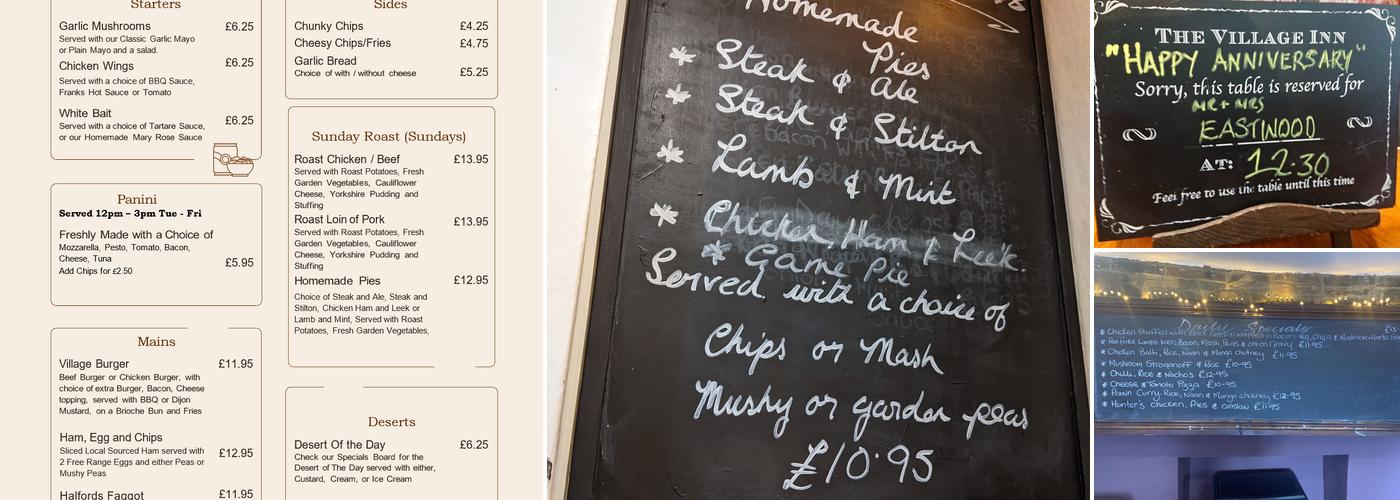 Starters
Garlic Mushrooms £6.25
Served with our Classic Garlic Mayo
or Plain Mayo and a salad.
Chicken Wings £6.25
Served with a choice of BBQ Sauce,
Franks Hot Sauce or Tomato
White Bait £6.25
Served with a choice of Tartare Sauce,
or our Homemade Mary Rose Sauce
Panini
Served 12pm – 3pm Tue - Fri
Freshly Made with a Choice of
Mozzarella, Pesto, Tomato, Bacon,
Cheese, Tuna £5.95
Add Chips for £2.50
Mains
Village Burger £11.95
Beef Burger or Chicken Burger, with
choice of extra Burger, Bacon, Cheese
topping, served with BBQ or Dijon
Mustard, on a Brioche Bun and Fries
Ham, Egg and Chips
Sliced Local Sourced Ham served with £12.95
2 Free Range Eggs and either Peas or
Mushy Peas
Halfords Faggot £11.95
Sides
Chunky Chips £4.25
Cheesy Chips/Fries £4.75
Garlic Bread
Choice of with / without cheese £5.25
Sunday Roast (Sundays)
Roast Chicken / Beef £13.95
Served with Roast Potatoes, Fresh
Garden Vegetables, Cauliflower
Cheese, Yorkshire Pudding and
Stuffing
Roast Loin of Pork £13.95
Served with Roast Potatoes, Fresh
Garden Vegetables, Cauliflower
Cheese, Yorkshire Pudding and
Stuffing
Homemade Pies £12.95
Choice of Steak and Ale, Steak and
Stilton, Chicken Ham and Leek or
Lamb and Mint, Served with Roast
Potatoes, Fresh Garden Vegetables,
Deserts
Desert Of the Day £6.25
Check our Specials Board for the
Desert of The Day served with either,
Custard, Cream, or Ice Cream
Homemade
Pies
* Steak & Ale
* Steak & Stilton
* Lamb & Mint
* Chicken, Ham & Leek.
* Game Pie
Served with a choice of
Chips or Mash
Mushy or garden peas
£10.95
THE VILLAGE INN
"HAPPY ANNIVERSARY"
Sorry, this table is reserved for
MR + MRS
EASTWOOD
AT: 12.30
Feel free to use the table until this time
Daily Specials
* Chicken Stuffed with wrapped in Bacon, Veg, Chips & Mushroom + Garlic
* Pan fried Lambs liver, Bacon, Mash, Peas & onion Gravy £11.95
* Chicken Balti, Rice, Naan & Mango chutney £11.95
* Mushroom Stroganoff & Rice £10.95
* Chilli, Rice & Nacho's £12.95
* Cheese & Tomato Pizza £10.95
* Prawn Curry, Rice, Naan & Mango chutney £12.95
* Hunter's chicken, fries & coleslaw £11.95